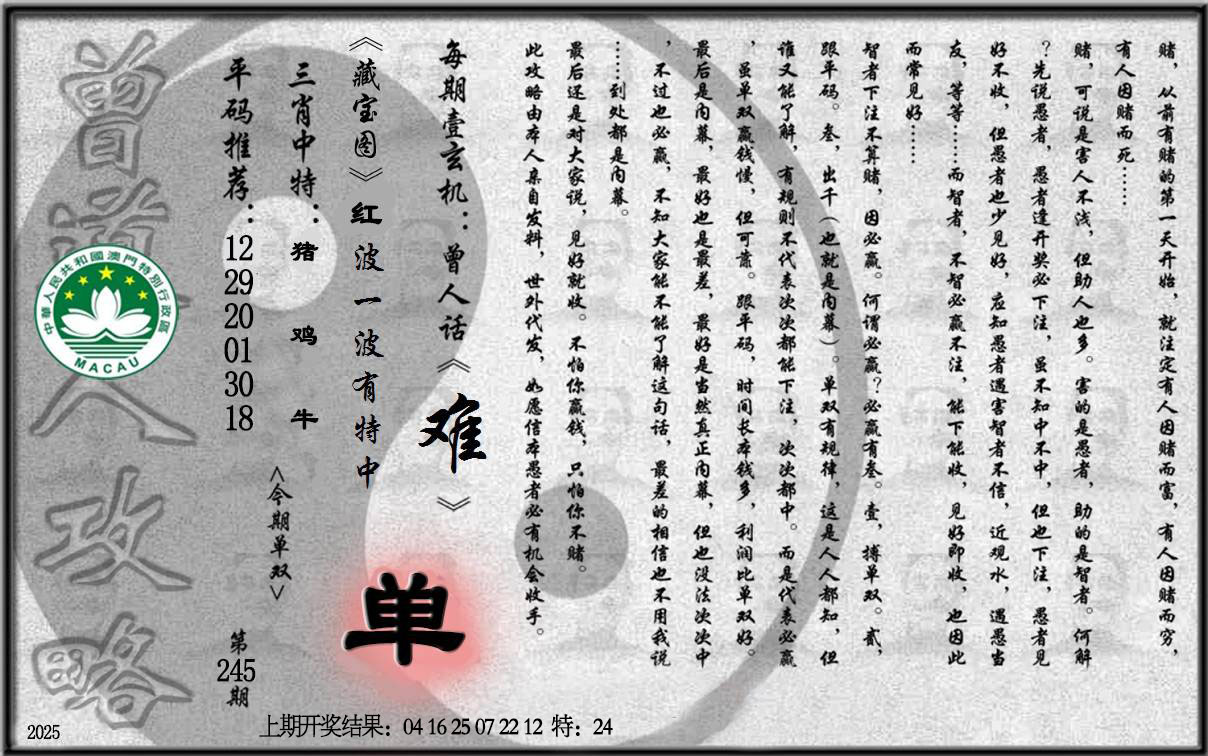 赌，从前有赌的第一天开始，就注定有人因赌而富，有人因赌而穷，
有人因赌而死……
赌，可说是害人不浅，但助人也多。害的是愚者，助的是智者。何解
？先说愚者，愚者逢开奖必下注，虽不知中不中，但也下注，愚者见
好不收，但愚者也少见好，应知愚者遇害智者不信，近观水，遇愚当
友，等等……而智者，不智必赢不注，能下能收，见好即收，也因此
而常见好……
智者下注不算赌，因必赢。何谓必赢？必赢有叁。壹，搏单双。贰，
跟平码。叁，出千（也就是内幕）。单双有规律，这是人人都知，但
谁又能了解，有规则不代表次次都能下注，次次都中。而是代表必赢
，虽单双赢钱慢，但可靠。跟平码，时间长本钱多，利润比单双好。
最后是内幕，最好也是最差，最好是当然真正内幕，但也没法次次中
，不过也必赢，不知大家能不能了解这句话，最差的相信也不用我说
……到处都是内幕。
最后还是对大家说，见好就收。不怕你赢钱，只怕你不赌。
此攻略由本人亲自发料，世外代发，如愿信本愚者必有机会收手。
每期壹玄机：曾人话《难》
《藏宝图》红波一波有特中
单
三肖中特：猪 鸡 牛
<今期单双>
平码推荐：12 29 20 01 30 18
第245期
曾道人攻略
中華人民共和國澳門特別行政區
MACAU
2025
上期开奖结果：04 16 25 07 22 12 特：24